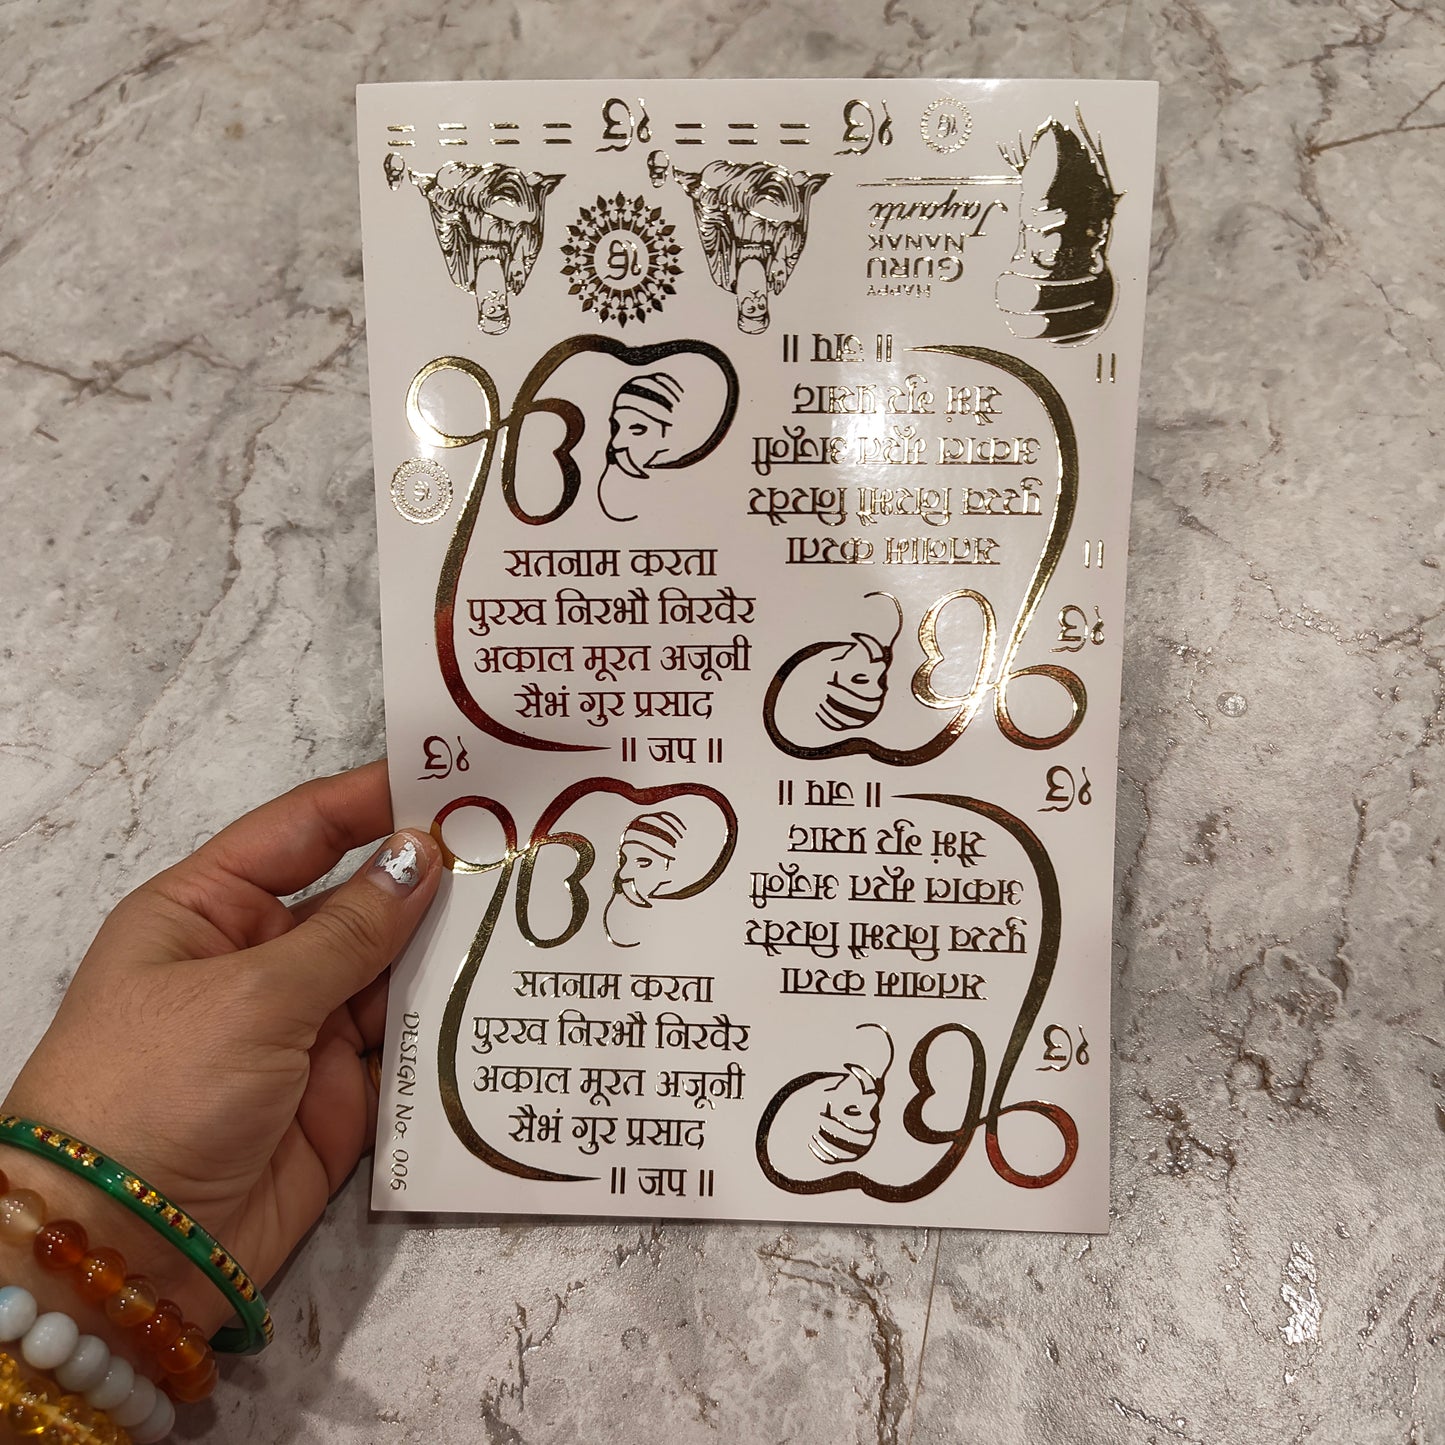 = = = = ੴ = = = ੴ ੴ
ੴ
HAPPY
GURU
NANAK
Jayanti
सतनाम करता
पुरख निरभौ निरवैर
अकाल मूरत अजूनी
सैभं गुर प्रसाद
॥ जप ॥
ੴ
सतनाम करता
पुरख निरभौ निरवैर
अकाल मूरत अजूनी
सैभं गुर प्रसाद
॥ जप ॥
ੴ
ੴ
ੴ
सतनाम करता
पुरख निरभौ निरवैर
अकाल मूरत अजूनी
सैभं गुर प्रसाद
॥ जप ॥
ੴ
ੴ
सतनाम करता
पुरख निरभौ निरवैर
अकाल मूरत अजूनी
सैभं गुर प्रसाद
॥ जप ॥
ੴ
ੴ
ੴ
DESIGN No. 006